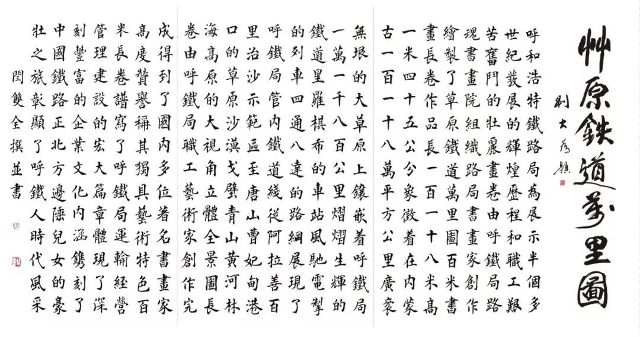 艸原鉄道萬里圖
劉大為題
呼和浩特鐵路局為展示半個多
世紀發展的輝煌歷程和職工艱
苦奮鬥的壯麗畫卷由呼鐵局路
書畫院組織路局書畫家創作
繪製了草原鐵道萬里圖百米書
畫長卷作品長一百一十八米高
一米四十五公分象徵着在內蒙
古一百一十八萬平方公里廣袤
無垠的大草原上鑲嵌着呼鐵局
一萬一千八百公里熠熠生輝的
鐵道里羅棋布的車站風馳電掣
的列車四通八達的路網展現了
呼鐵局管內鐵道綫從阿拉善百
里治沙示範區至唐山曹妃甸港
口的草原沙漠戈壁青山黃河林
海高原的大視角立體全景圖長
卷由呼鐵局職工藝術家創作完
成得到了國內多位著名書畫家
高度贊譽稱其獨具藝術特色百
米長卷譜寫了呼鐵局運輸經營
管理建設的宏大篇章體現了深
刻豐富的企業文化內涵鐫刻了
中國鐵路正北方邊陲兒女的豪
壯之旅彰顯了呼鐵人時代風采
閆雙全撰並書